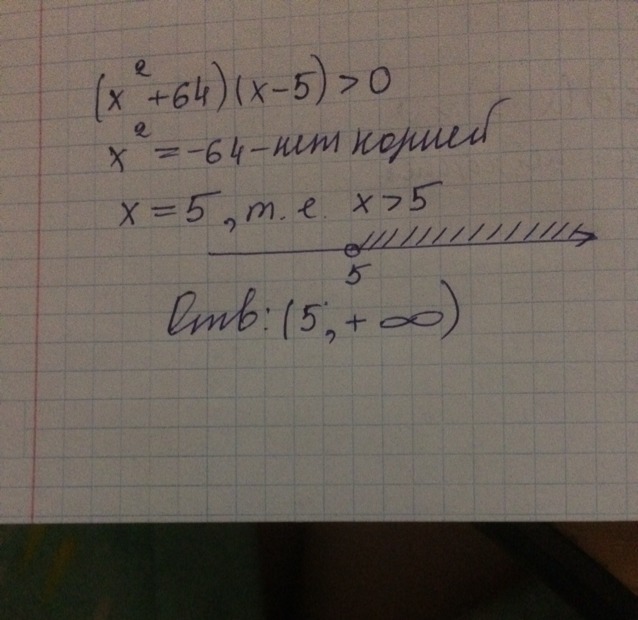 (x² + 64)(x - 5) > 0
x² = -64 - нет корней
x = 5, т. е. x > 5
5
Отв: (5; +∞)